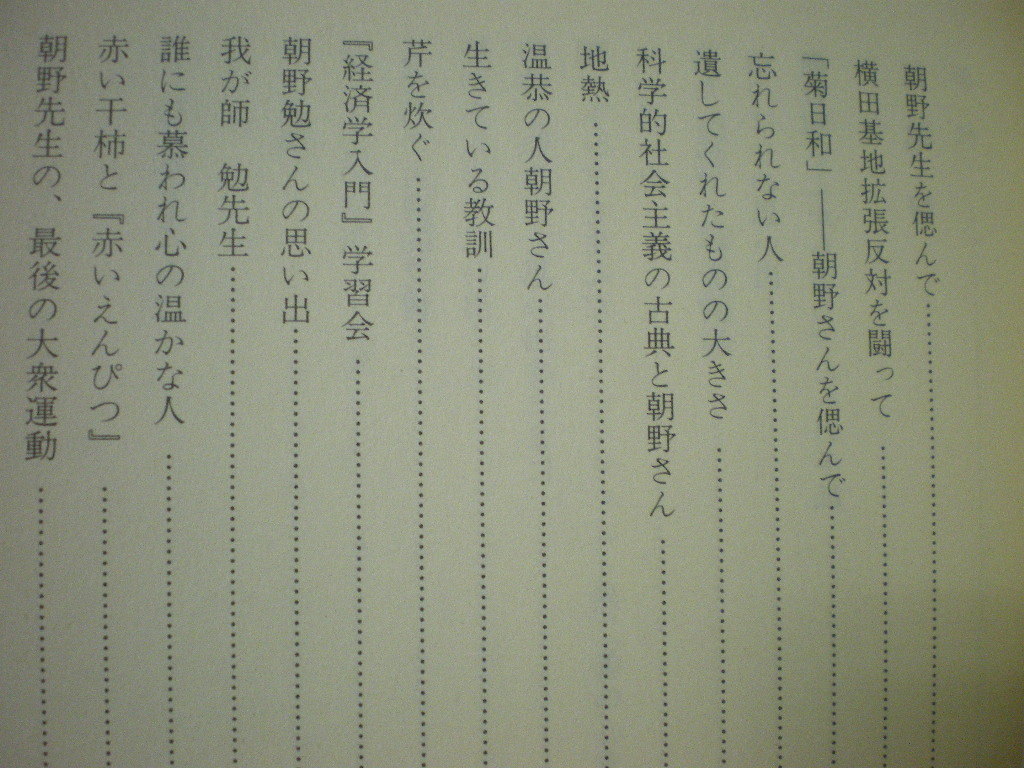 朝野先生を偲んで
横田基地拡張反対を闘って
「菊日和」――朝野さんを偲んで
忘れられない人
遺してくれたものの大きさ
科学的社会主義の古典と朝野さん
地熱
温恭の人朝野さん
生きている教訓
芹を炊ぐ
『経済学入門』学習会
朝野勉さんの思い出
我が師　勉先生
誰にも慕われ心の温かな人
赤い干柿と『赤いえんぴつ』
朝野先生の、最後の大衆運動